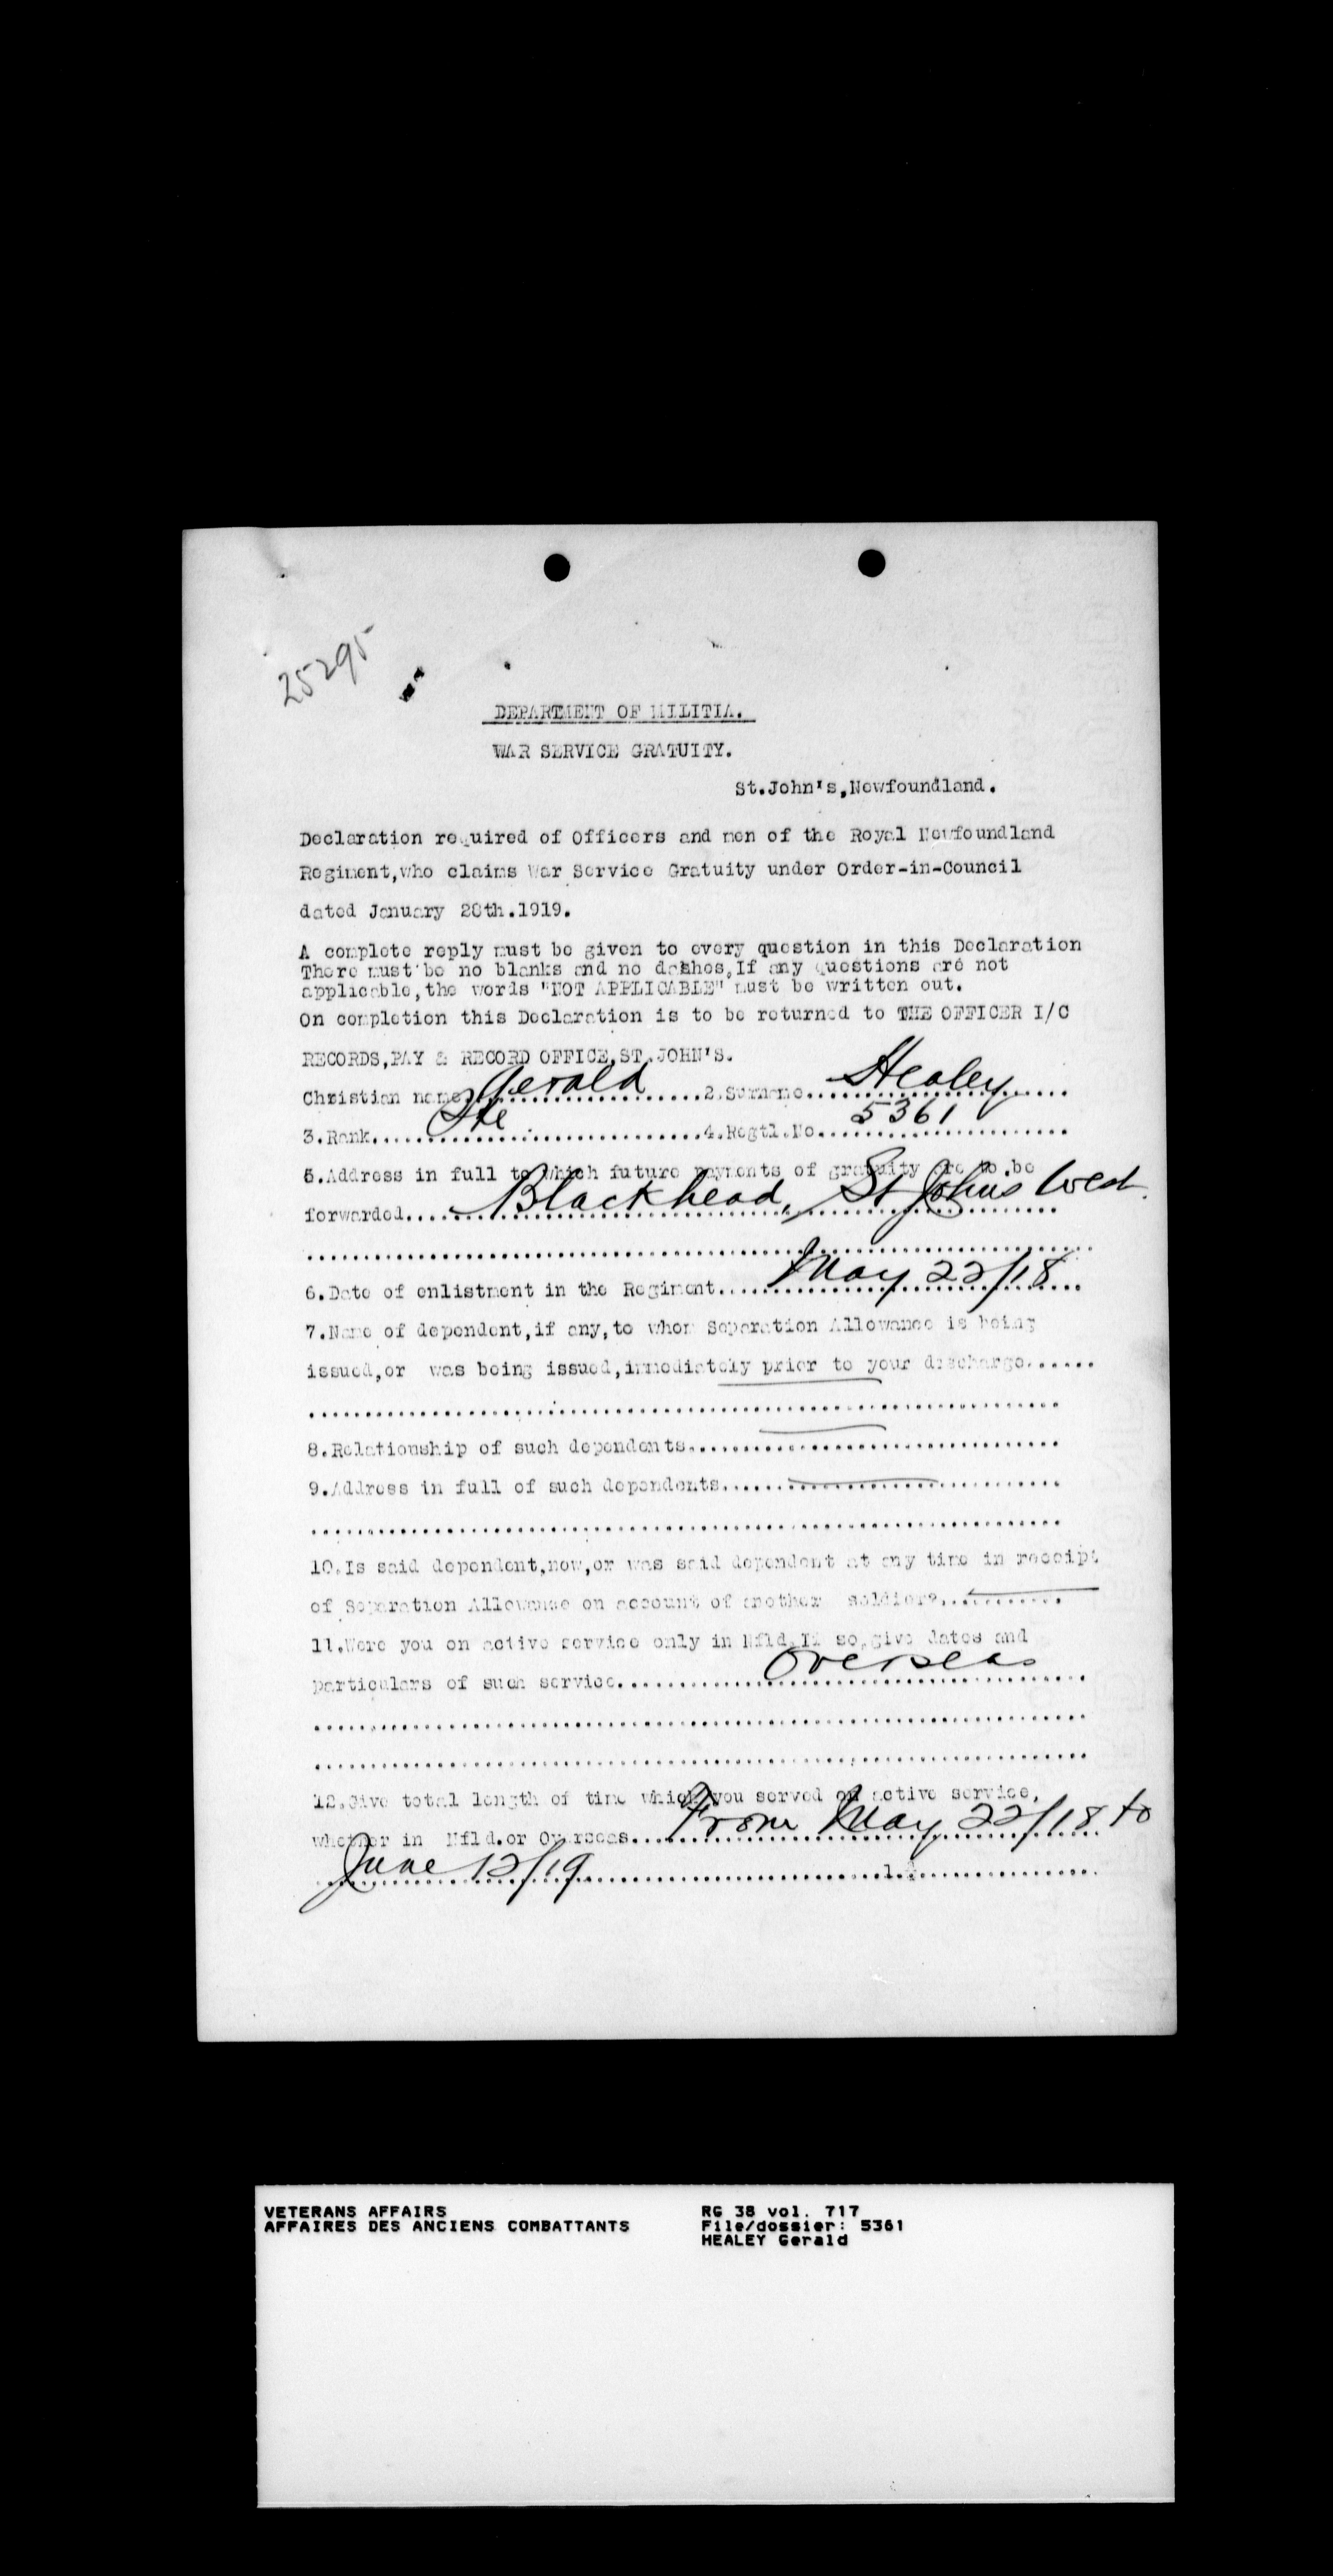 25295
DEPARTMENT OF MILITIA.
WAR SERVICE GRATUITY.
St.John's,Newfoundland.
Declaration required of Officers and men of the Royal Newfoundland
Regiment,who claims War Service Gratuity under Order-in-Council
dated January 28th.1919.
A complete reply must be given to every question in this Declaration
There must be no blanks and no dashes,If any questions are not
applicable,the words "NOT APPLICABLE" must be written out.
On completion this Declaration is to be returned to THE OFFICER I/C
RECORDS,PAY & RECORD OFFICE,ST.JOHN'S.
Christian name Gerald 2.Surname Healey
3.Rank Pte 4.Regtl.No. 5361
5.Address in full to which future payments of gratuity are to be
forwarded Blackhead, St Johns West.
6.Date of enlistment in the Regiment May 22/18
7.Name of dependent,if any,to whom Separation Allowance is being
issued,or was being issued,immediately prior to your discharge
8.Relationship of such dependents
9.Address in full of such dependents
10.Is said dependent,now,or was said dependent at any time in receipt
of Separation Allowance on account of another soldier?
11.Were you on active service only in Nfld.If so,give dates and
particulars of such service Overseas
12.Give total length of time which you served on active service,
whether in Nfld.or Overseas From May 22/18 to
June 12/19
VETERANS AFFAIRS RG 38 vol. 717
AFFAIRES DES ANCIENS COMBATTANTS File/dossier: 5361
HEALEY Gerald